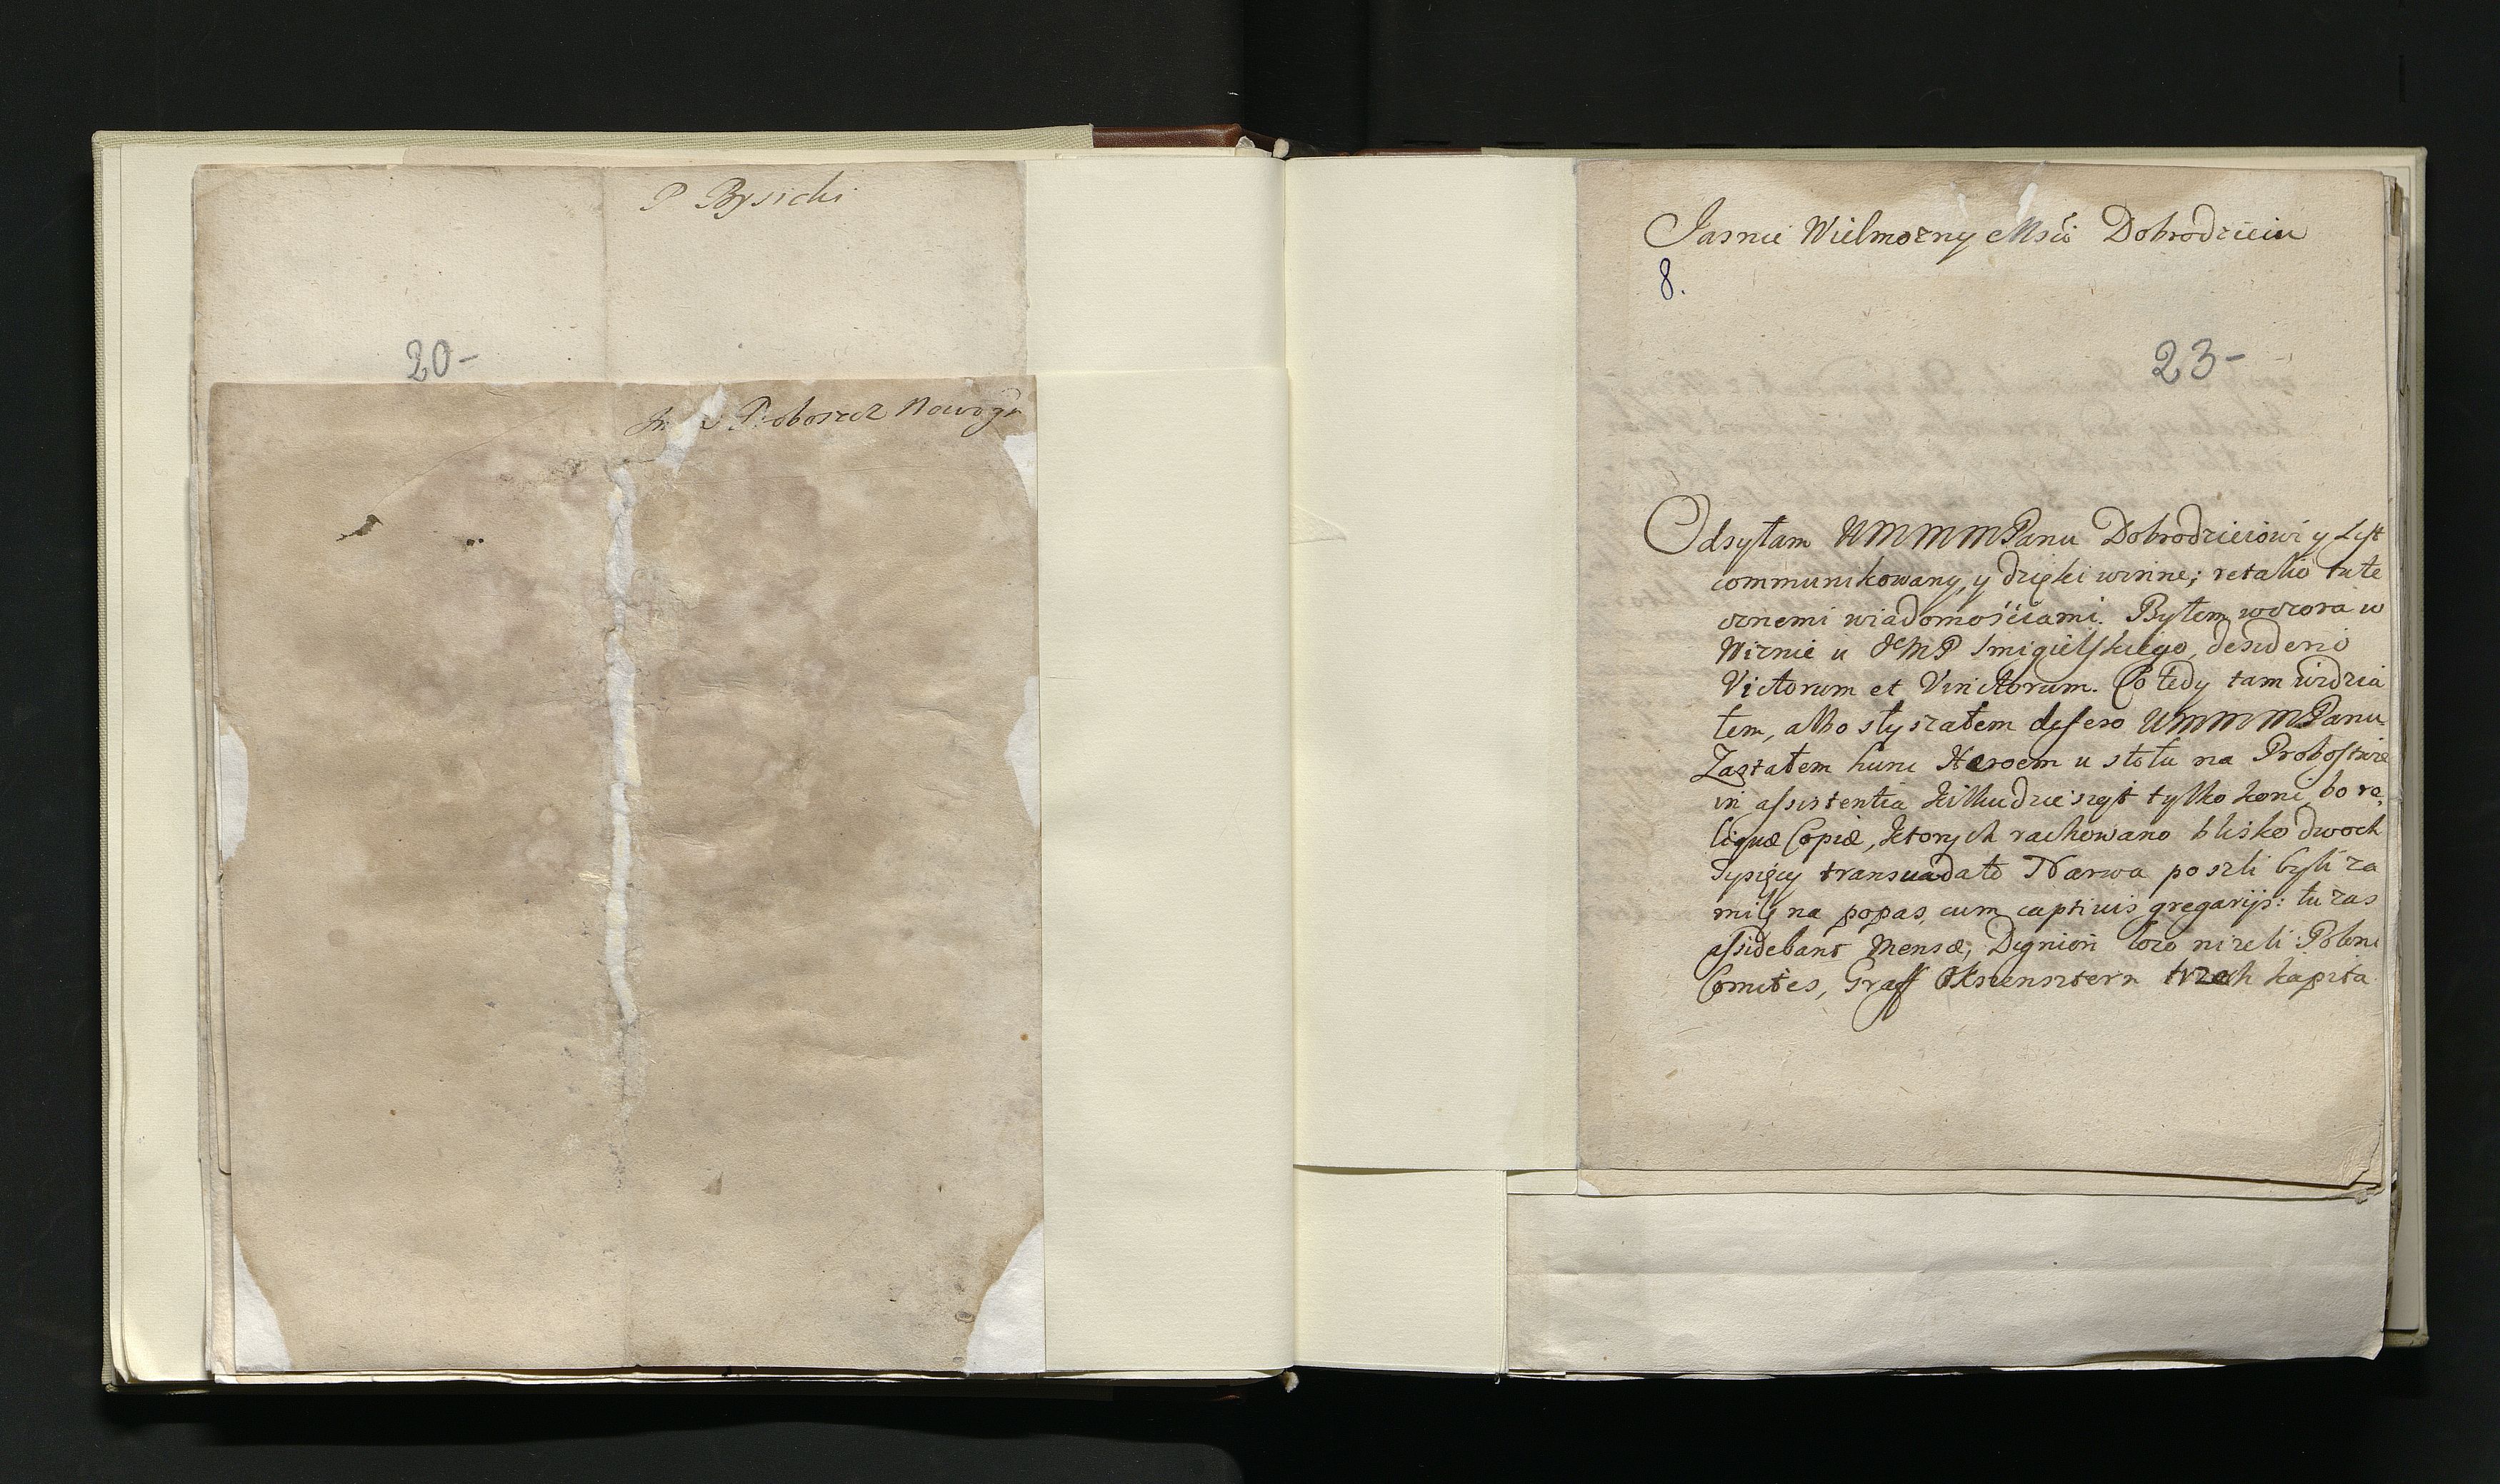 P Bysicki
20-
Proboszcz Nowogr
Jasnie Wielmozny Mśći Dobrodzieiu
8.
23-
Odsyłam WMMMPanu Dobrodzieiowi y List
communikowany, y dzięki winne; retalio tute
cznemi wiadomośćiami. Byłem wczora w
Wiznie u JKMP Smigielskiego, desiderio
Victorum et Vinctorum. Co tedy tam widzia
łem, albo słyszałem defero WMMMPanu.
Zastałem hunc Heroem u stołu na Probostwie
in assistentia kilkudziesiąt tylko koni, bo re,
liquæ Copiæ, ktorych rachowano blisko dwoch
Tysięcy transuadato Narwa poszli byli za
milę na popas, cum captiuis gregarijs: tu zas
assidebant Mensæ, Digniori loco nizeli Poloni
Comites, Graff Oksiensztern trzech kapita